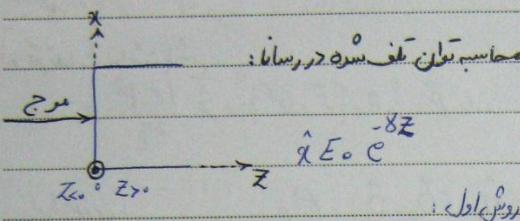 x
محاسبه توان تلف شده در رسانا:
موج
x̂ E₀ e^-γz
z<0 z>0 z
روش اول: